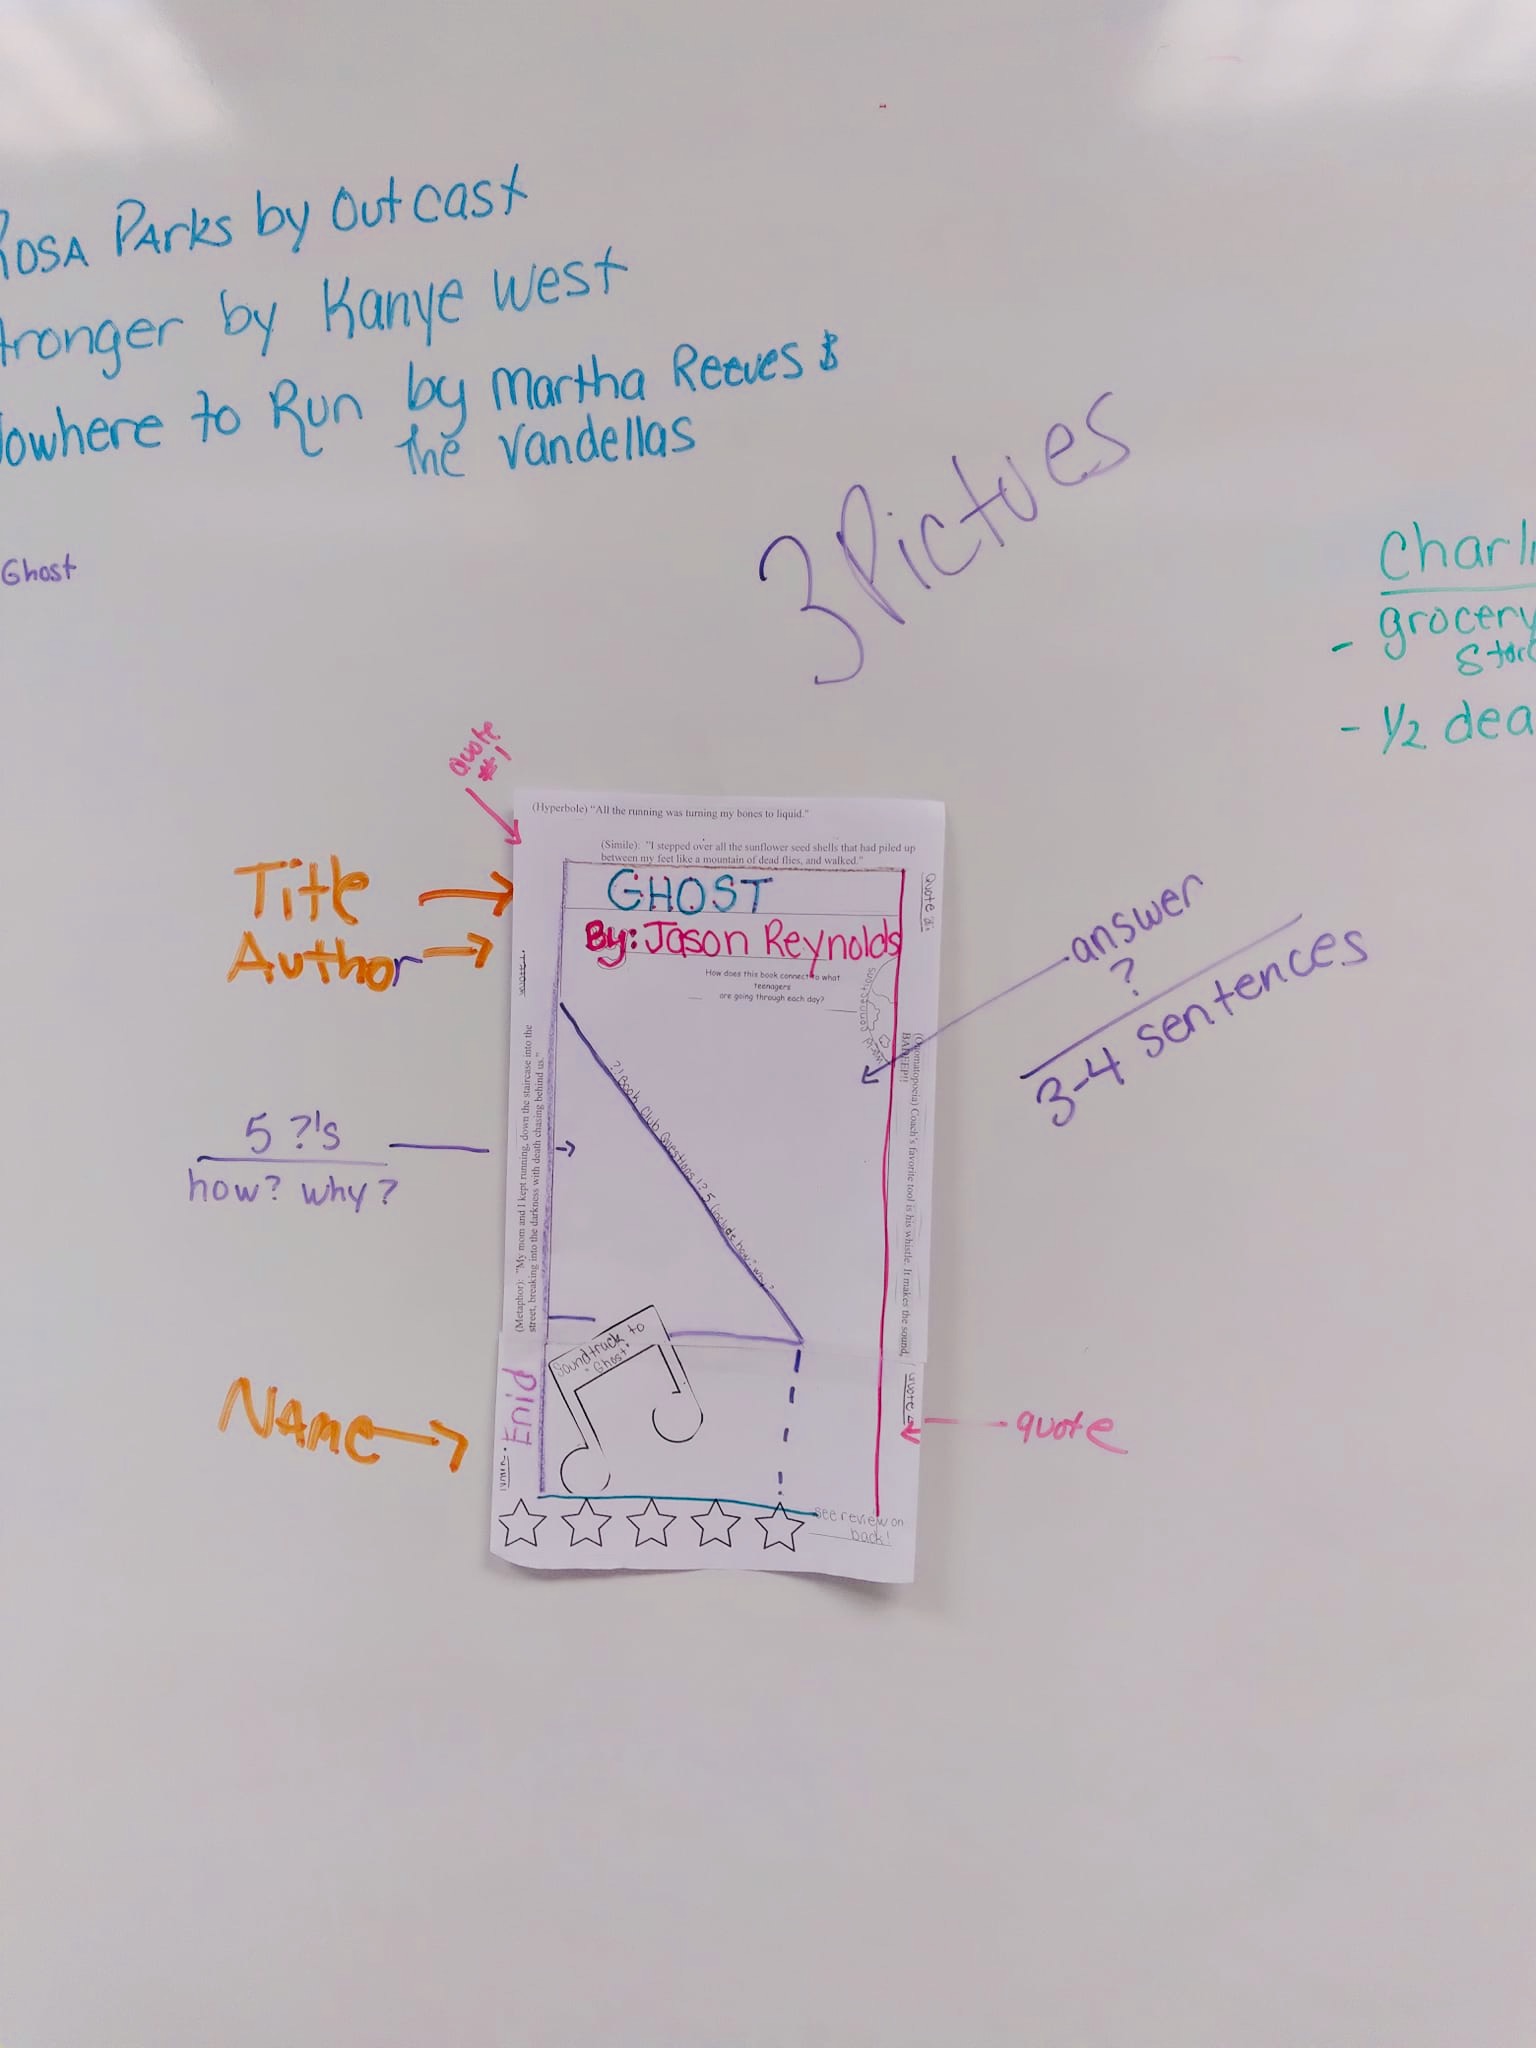 Rosa Parks by Outcast
tronger by Kanye West
Nowhere to Run by Martha Reeves &
the Vandellas
3 Pictues
Ghost
Charli
- grocery
store
- 1/2 dea
Quote
#1
(Hyperbole) "All the running was turning my bones to liquid."
(Simile): "I stepped over all the sunflower seed shells that had piled up
between my feet like a mountain of dead flies, and walked."
Title
Author
GHOST
By: Jason Reynolds
Quote
How does this book connect to what
teenagers
are going through each day?
answer
?
3-4 sentences
5 ?'s
how? why?
(Metaphor): "My mom and I kept running, down the staircase into the
street, breaking into the darkness with death chasing behind us."
?! Book Club Questions !? 5 (include how? why?
(Onomatopoeia) Coach's favorite tool is his whistle. It makes the sound,
Soundtrack to
"Ghost"
Name
Enid
Quote
quote
see review on
back!